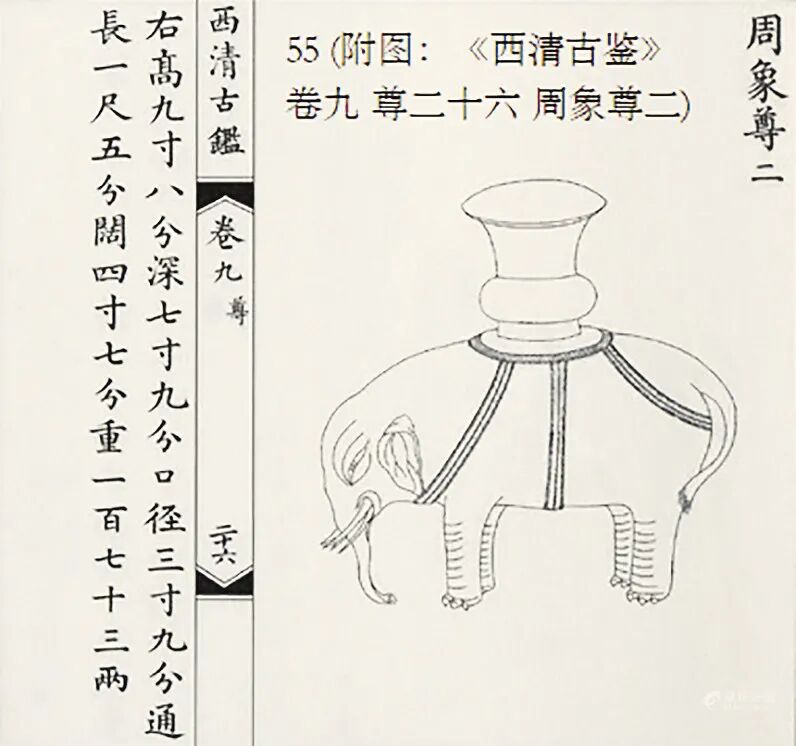 周象尊二
55 (附图：《西清古鉴》
卷九 尊二十六 周象尊二)
西清古鑑
卷九 尊
二十六
右高九寸八分深七寸九分口径三寸九分通
長一尺五分闊四寸七分重一百七十三兩